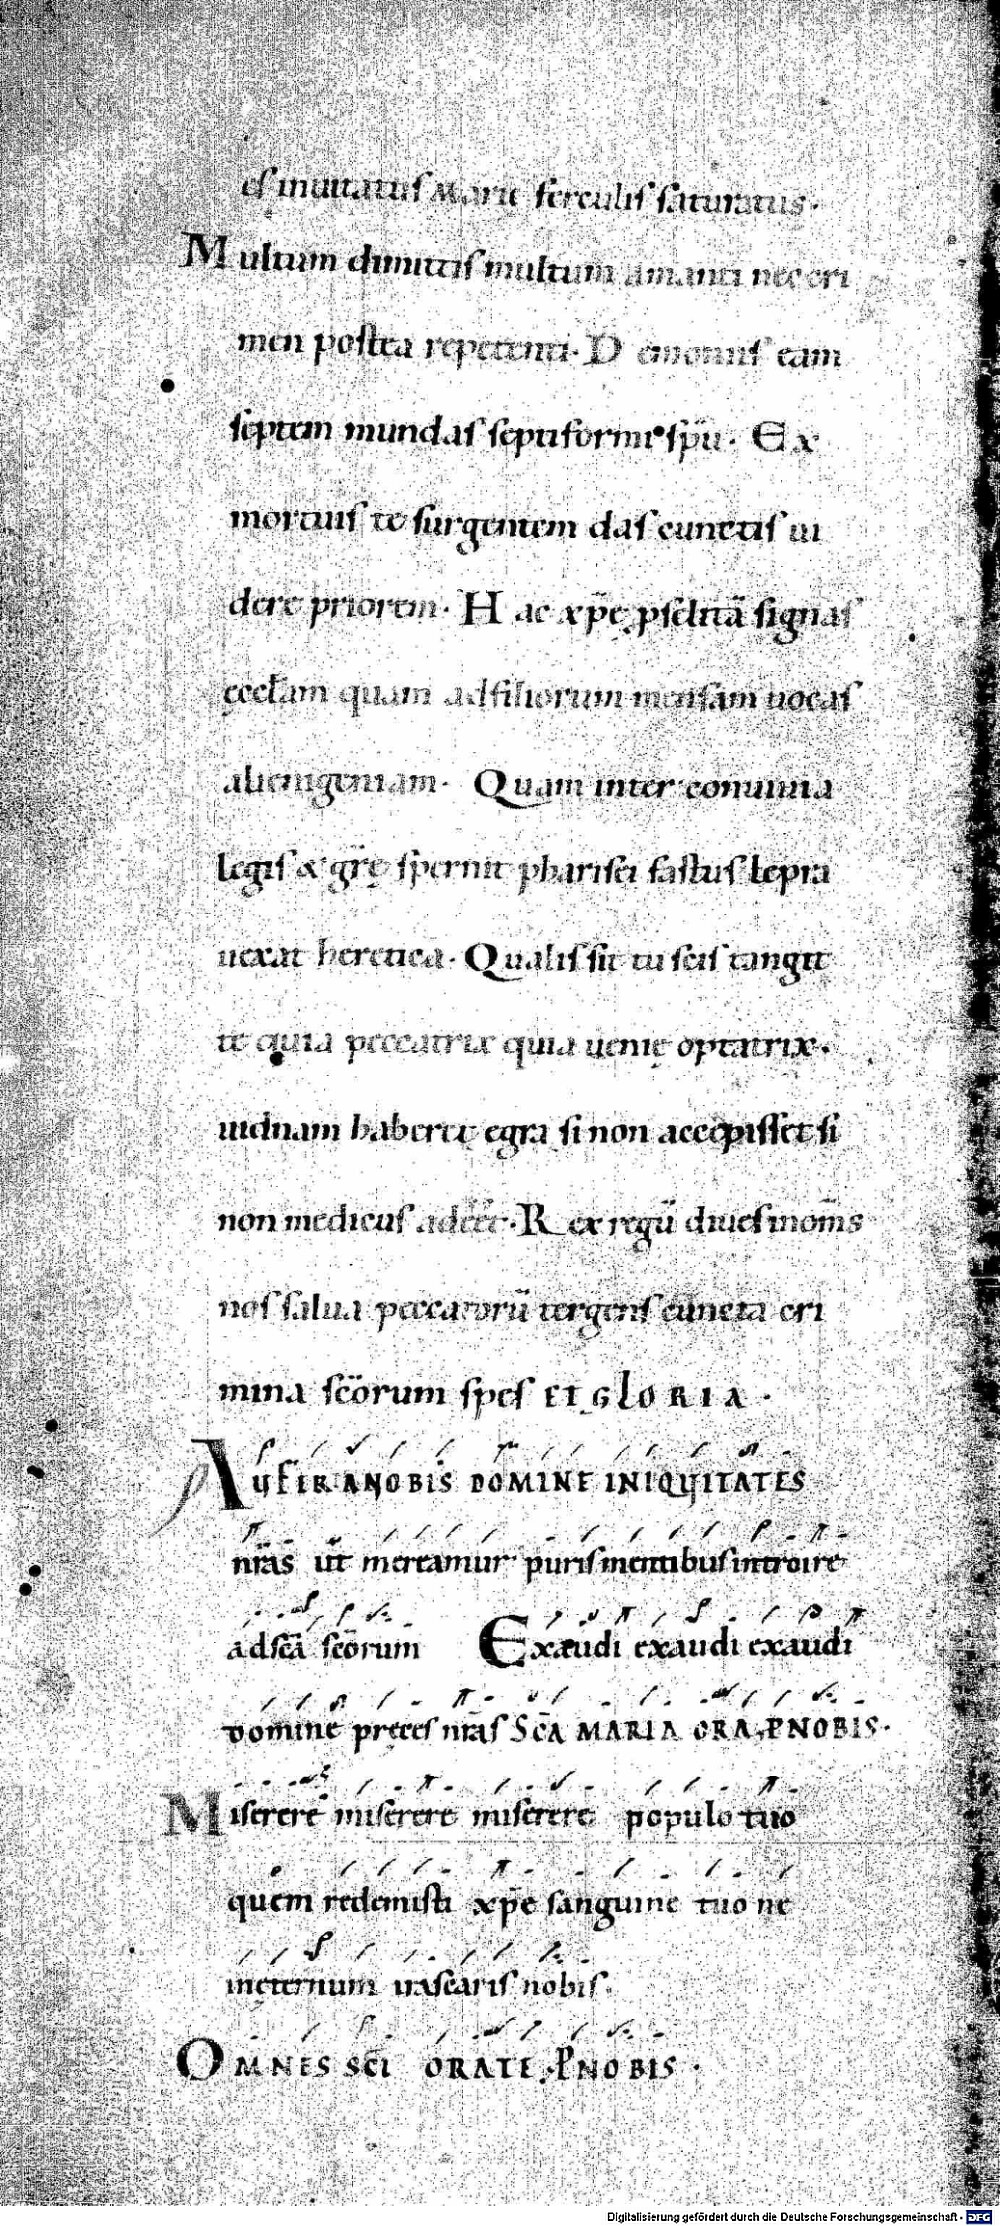 es inuitatus Marie ferculis saturatus.
Multum dimittis multum amanti nec cri
men postea repetenti. Demoniis eam
septem mundas septiformi sp̄u. Ex
mortuis te surgentem das cunctis ui
dere priorem. Hac xp̄e p̱selitā signas
ęccłam quam ad filiorum mensam uocas
alienigenam. Quam inter conuiuia
legis & gr̄ę spernit pharisei fastus lepra
uexat heretica. Qualis sit tu scis tangit
te quia peccatrix quia uenię optatrix.
uidnam haberet egra si non accepisset si
non medicus adēēt. Rex regū diues in om̄s
nos salua peccatorū tergens cuncta cri
mina sc̄orum spes ET GLORIA.
AUFER A NOBIS DOMINE INIQUITATES
nr̄as ut mereamur puris mentibus introire
ad sc̄a sc̄orum Exaudi exaudi exaudi
domine preces nr̄as SC̄A MARIA ORA P̱ NOBIS.
Miserere miserere miserere populo tuo
quem redemisti xp̄e sanguine tuo ne
inęternum irascaris nobis.
OMNES SC̄I ORATE P̱ NOBIS.
Digitalisierung gefördert durch die Deutsche Forschungsgemeinschaft - DFG